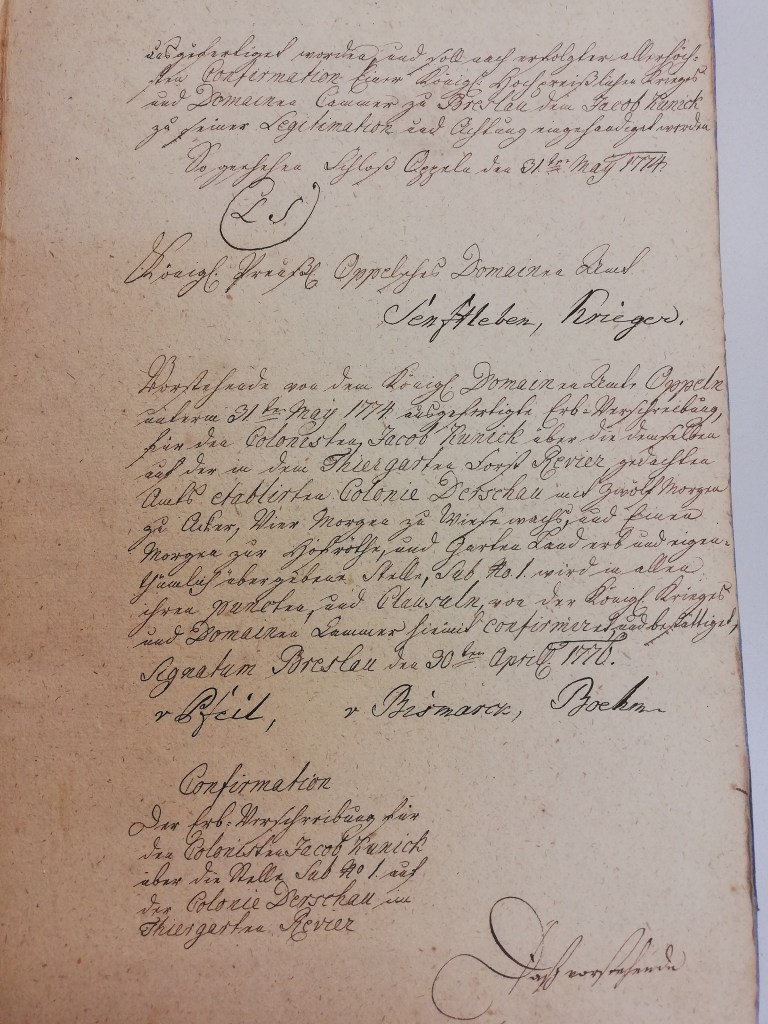 ausgefertiget worden, und soll nach erfolgter allerhöch-
sten Confirmation Einer Königl: Hochpreißlichen Krieges
und Domainen Cammer zu Breslau dem Jacob Kunick
zu seiner Legitimation und Achtung eingehändiget werden
So geschehen Schloß Oppeln den 31ten May 1774.
L S
Königl: Preußl Oppelsches Domainen Amt.
Senftleben, Krieger.
Vorstehende von dem Königl: Domainen Amte Oppeln
unterm 31ten May 1774 ausgefertigte Erb-Verschreibung,
für den Colonisten Jacob Kunick über die demselben
auf der in dem Thiergarten Forst Revier gedachten
Amts etablirten Colonie Derschau mit zwölf Morgen
zu Acker, Vier Morgen zu Wiesewachs, und Einen
Morgen zur Hofröthe, und Garten Land erb und eigen-
thümlich übergebene Stelle, Sub No. 1. wird in allen
ihren puncten, und Clausuln, von der Königl Krieges
und Domainen Cammer hiemit confirmiret und bestättiget,
Signatum Breslau den 30ten April: 1776.
v Pfeil, v Bismarck, Boehm
Confirmation
Der Erb-Verschreibung für
den Colonisten Jacob Kunick
über die Stelle Sub No 1. auf
der Colonie Derschau im
Thiergarten Revier
Daß vorstehende